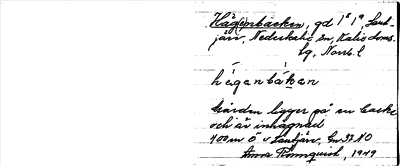 Håg(en)backen, gd 1/2 1a, Lant-
järv, Nederkalix sn, Kalix doms.
bg, Norrb. l
hɑ́ganbákan
Gården ligger på en backe
och är inhägnad
400 m Ö v Lantjärv, Gv 37 NO
Anna Blomquist, 1949